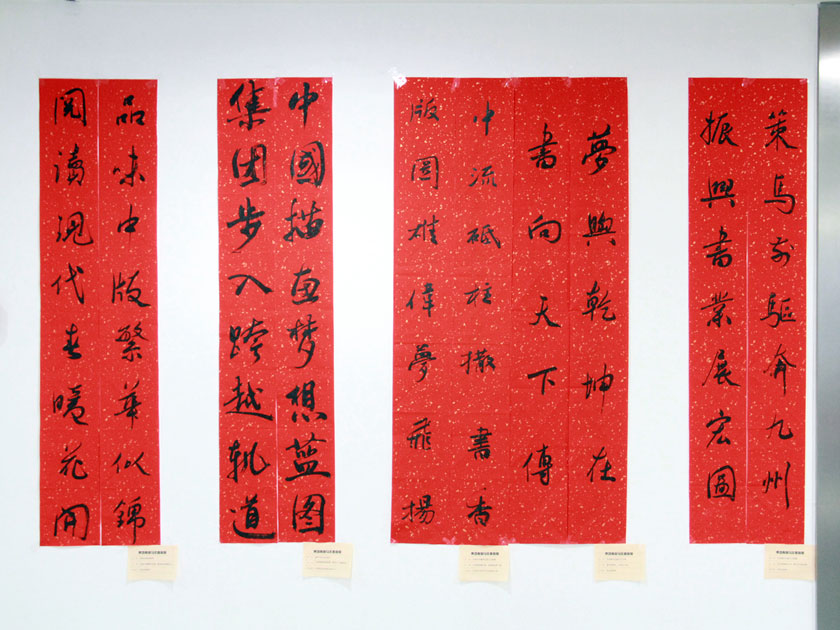 策馬前驅奔九州
振興書業展宏圖
夢與乾坤在
書向天下傳
中流砥柱撒書香
版圖雄偉夢飛揚
中國描画梦想蓝图
集团步入跨越轨道
品味中版繁華似錦
阅讀现代春暖花開